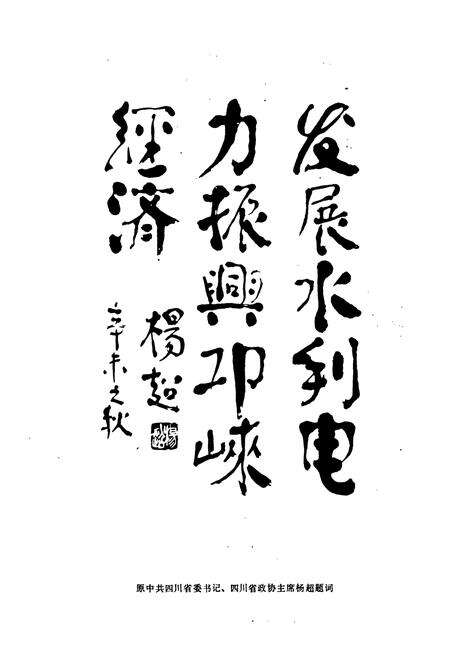 发展水利电
力振興邛崍
經濟
楊超
辛未之秋
原中共四川省委书记、四川省政协主席杨超题词